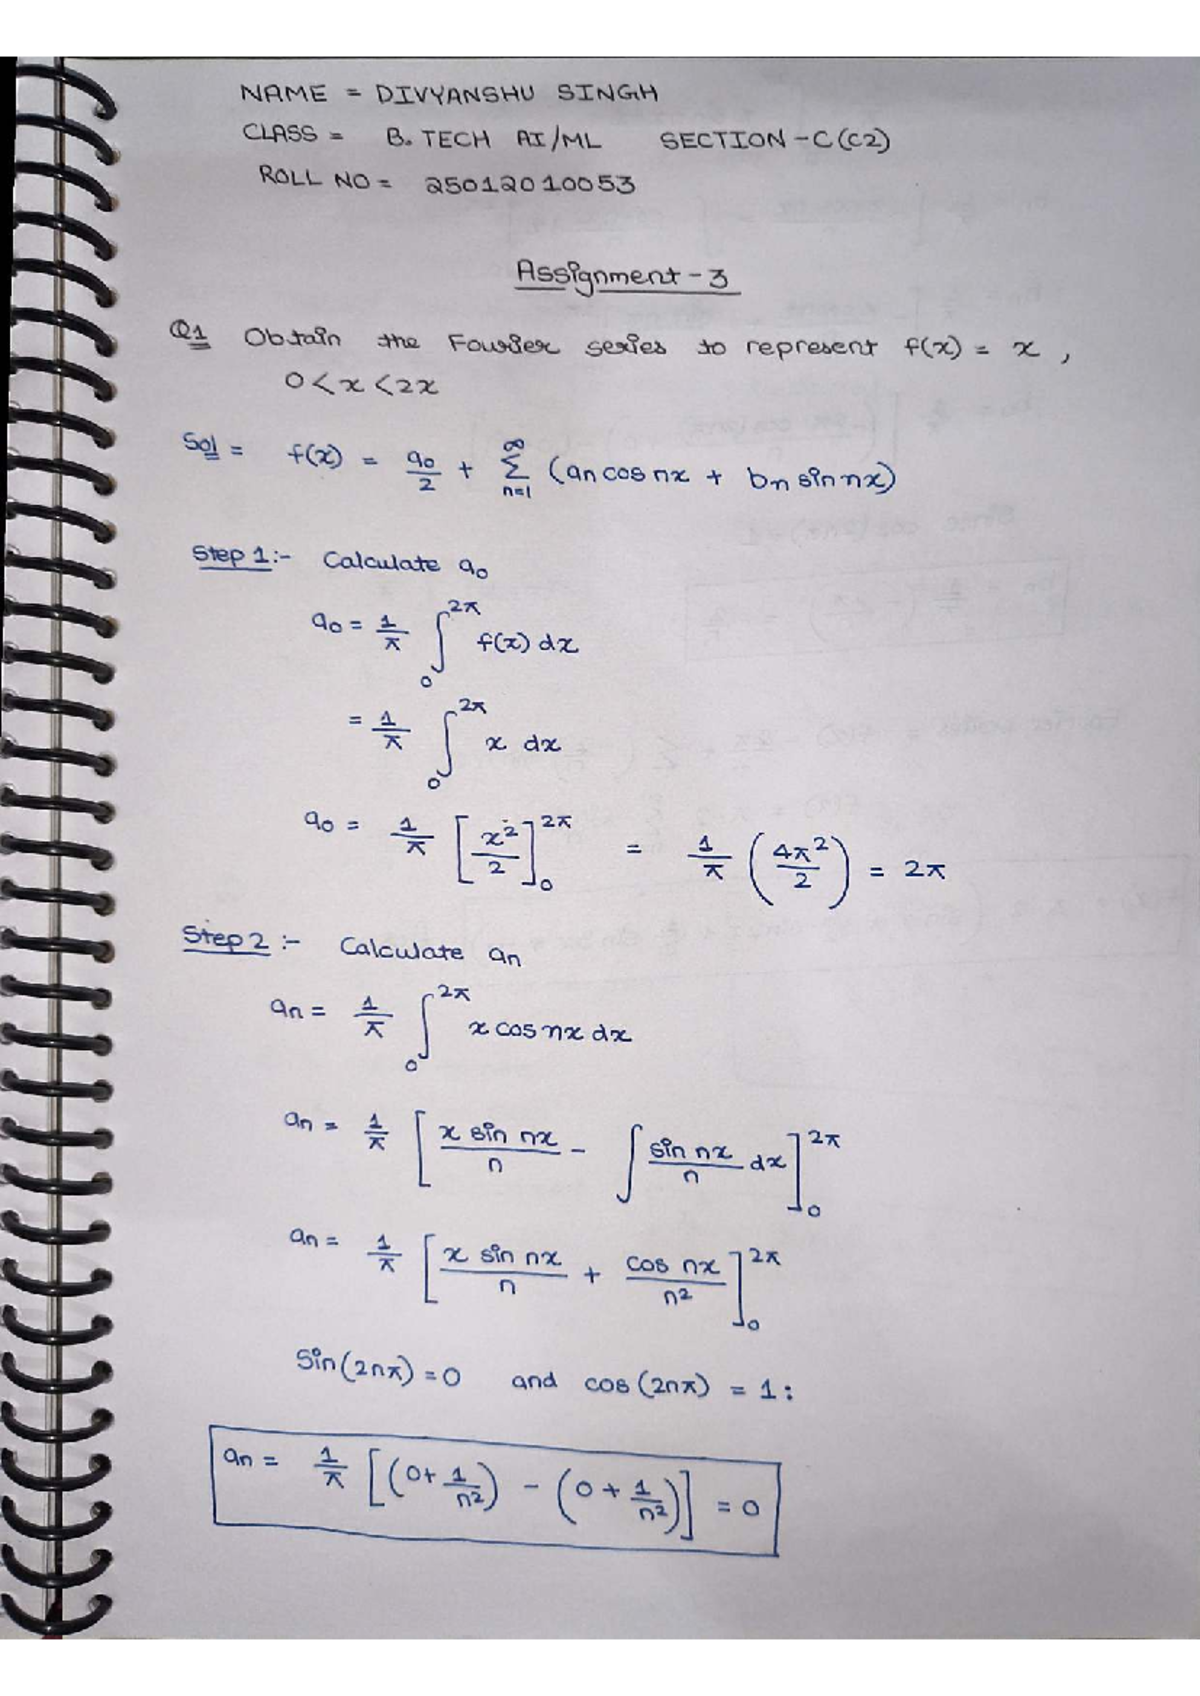 NAME = DIVYANSHU SINGH
CLASS = B.TECH AI/ML SECTION-C(C2)
ROLL NO = 25012010053
Assignment-3
Q1 Obtain the Fourier series to represent f(x) = x ,
0<x<2x
Sol = f(x) = a0/2 + Σ_{n=1}^{∞} (an cos nx + bn sin nx)
Step 1:- Calculate a0
a0 = 1/π ∫_0^{2π} f(x) dx
= 1/π ∫_0^{2π} x dx
a0 = 1/π [x²/2]_0^{2π} = 1/π (4π²/2) = 2π
Step 2 :- Calculate an
an = 1/π ∫_0^{2π} x cos nx dx
an = 1/π [x sin nx/n - ∫ sin nx/n dx]_0^{2π}
an = 1/π [x sin nx/n + cos nx/n²]_0^{2π}
Sin(2nπ) = 0 and cos(2nπ) = 1:
an = 1/π [(0+1/n²) - (0+1/n²)] = 0